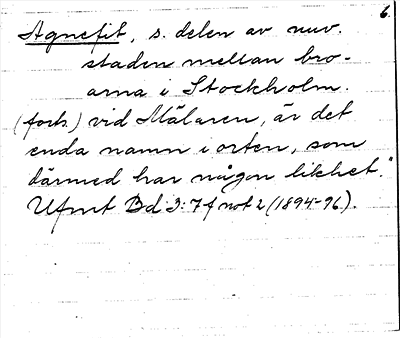 6.
Agnefit, s. delen av nuv.
staden mellan bro-
arna i Stockholm.
(forts.) vid Mälaren, är det
enda namn i orten, som
därmed har någon likhet."
Ufmt Bd 3: 7 f not 2 (1894-96).